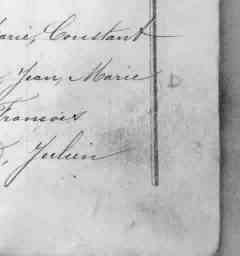 arie, Constant
, Jean, Marie
François
, Julien